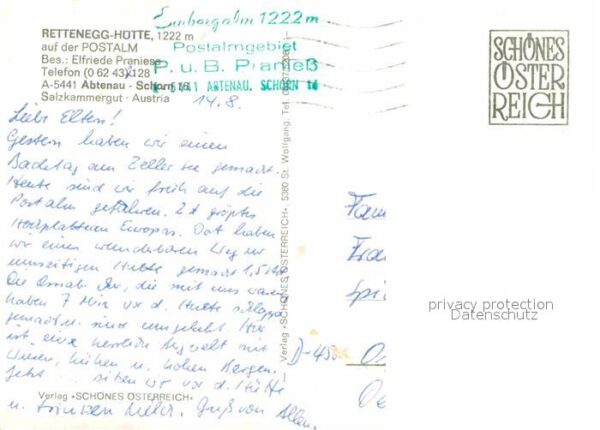 RETTENEGG-HÜTTE, 1222 m
auf der POSTALM
Bes.: Elfriede Praniess
Telefon (0 62 43) 128
A-5441 Abtenau - Schorn 16
Salzkammergut · Austria
1222 m
Postalmgebiet
P. u. B. Pranieß
A-5441 ABTENAU, SCHORN 16
SCHÖNES
ÖSTER
REICH
14.8.
Liebe Eltern!
Gestern haben wir einen
Badetag am Zeller See gemacht.
Heute sind wir früh auf die
Postalm gefahren. 2t größtes
Hochplateau Europas. Dort haben
wir einen wunderbaren Weg zur
Hütte gemacht 1,5 Std
Die die mit uns waren
haben 7 Min vor d. Hütte schlapp
gemacht u. sind umgekehrt. Hier
ist eine herrliche Bergwelt mit
Wiesen, Kühen u. hohen Bergen.
Jetzt sitzen wir vor d. Hütte
u. trinken Milch. Gruß von Allen.
Verlag »SCHÖNES ÖSTERREICH«
Verlag »SCHÖNES ÖSTERREICH« 5360 St. Wolfgang, Tel.
Fam
Fra
Spi
D-45
Os
privacy protection
Datenschutz